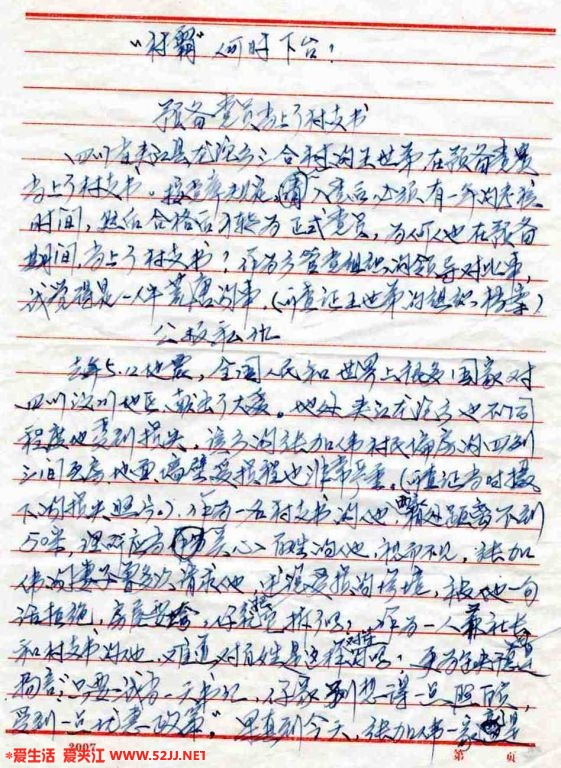 “村霸”何时下台！
预备党员当上了村支书
四川省夹江县龙沱乡三合村的王世第，在预备党员
当上了村支书。按党章规定，入党后，必须有一年的考核
时间，然后合格后才转为正式党员，为何他在预备
期间，当上了村支书？作为乡管党组织的领导对此事，
我觉得是一件荒唐的事。（可查证王世第的组织档案）
公报私仇
去年5.12地震，全国人民和世界上很多国家对
四川汶川地区献出了大爱。地处夹江龙沱乡也不同
程度地受到损失，该乡的张加伟村民偏房的四到
三间瓦房，地面、墙壁受损程也非常严重。（可查证当时摄
下的损失照片。）作为一名村支书的他，距离不到
50米，理所应当关心百姓的他，视而不见，张加
伟的妻子曾多次请求他，受损的，被他一句
话拒绝，作为一个兼社长
和村支书的他，难道对百姓是这样的吗？更
扬言：“只要我当一天书记，你家别想得一点照顾，
受到一点优惠政策”。果真到今天，张加伟一家
2007 第 页
*爱生活 爱夹江 www.52JJ.NET